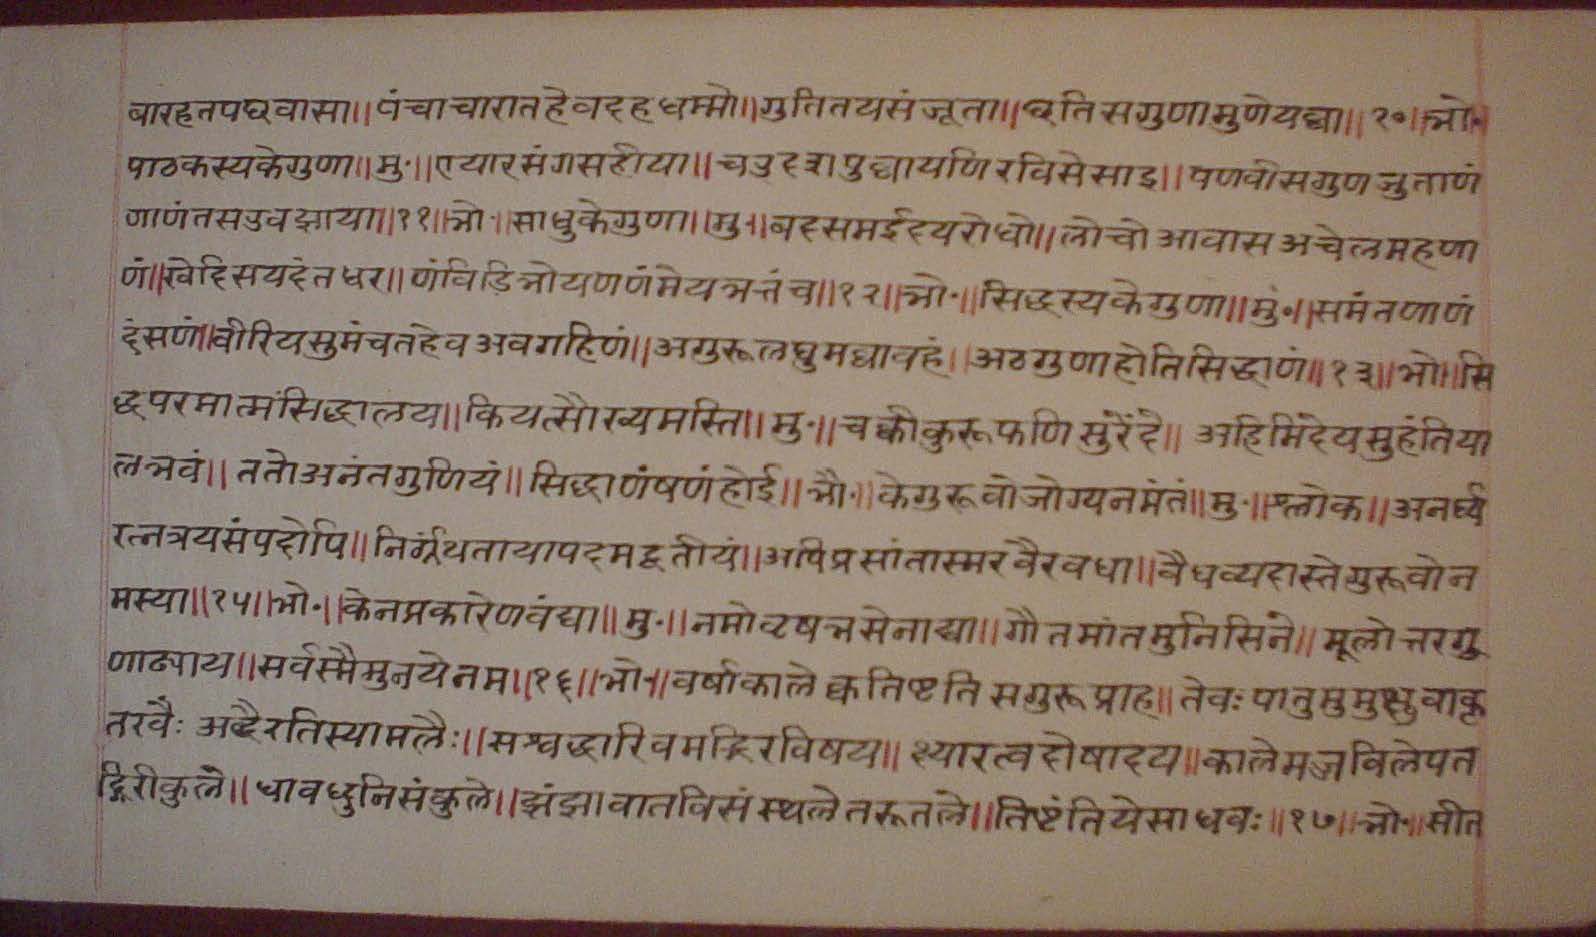 बारहतपछवासा॥ पंचाचारातहेवदहधम्मो॥ गुतितयसंजूता॥ छतिसगुणामुणेयद्या॥ १०॥ भो॰॥
पाठकस्यकेगुणा॥ मु॰॥ एयारसंगसहीया॥ चउदशपुद्यायणिरविसेसाइ॥ पणवीसगुणजुताणं
णाणंतसउवझाया॥ ११॥ भो॰॥ साधुकेगुणा॥ मु॰॥ बदसमईदयरोधो॥ लोचोआवासअचेलमहणा
णं॥ खेदिसयदंतधर॥ णंविडिभोयणणंमेयभत्तंच॥ १२॥ भो॰॥ सिद्धस्यकेगुणा॥ मु॰॥ समंतणाणं
दंसणं॥ वीरियसुमंचतहेवअवगहिणं॥ अगुरूलघुमद्यावहं॥ अठगुणाहोतिसिद्धाणं॥ १३॥ भो॥ सि
द्धपरमात्मंसिद्धालय॥ कियत्सौख्यमस्ति॥ मु॰॥ चक्कीकुरूफणिसुरेंदे॥ अहिमिंदेयसुहंतिया
लभवं॥ ततोअनंतगुणियं॥ सिद्धाणंषणंहोई॥ भौ॰॥ केगुरूवोजोग्यनमंतं॥ मु॰॥ श्लोक॥ अनर्घ्य
रत्नत्रयसंपदोपि॥ निर्ग्रंथतायापदमद्वतीयं॥ अपिप्रसांतास्मरवैरवधा॥ वैधव्यदास्तेगुरूवोन
मस्या॥ १५॥ भो॰॥ केनप्रकारेणवंद्या॥ मु॰॥ नमोवृषभसेनाद्या॥ गौतमांतमुनिसिने॥ मूलोत्तरगु
णाढ्याय॥ सर्वस्मैमुनयेनम॥ १६॥ भो॰॥ वर्षाकालेक्वतिष्टतिसगुरूप्राह॥ तेवः पातुमुमुक्षुवाकृ
तरवैः अब्दैरतिस्यामलैः॥ सश्वद्धारिवमद्भिरविषय॥ श्यारत्वदोषादय॥ कालेमज्जविलेपत
द्गिरीकुले॥ धावध्धुनिसंकुले॥ झंझावातविसंस्थलेतरूतले॥ तिष्टंतियेसाधवः॥ १७॥ भो॰॥ सीत